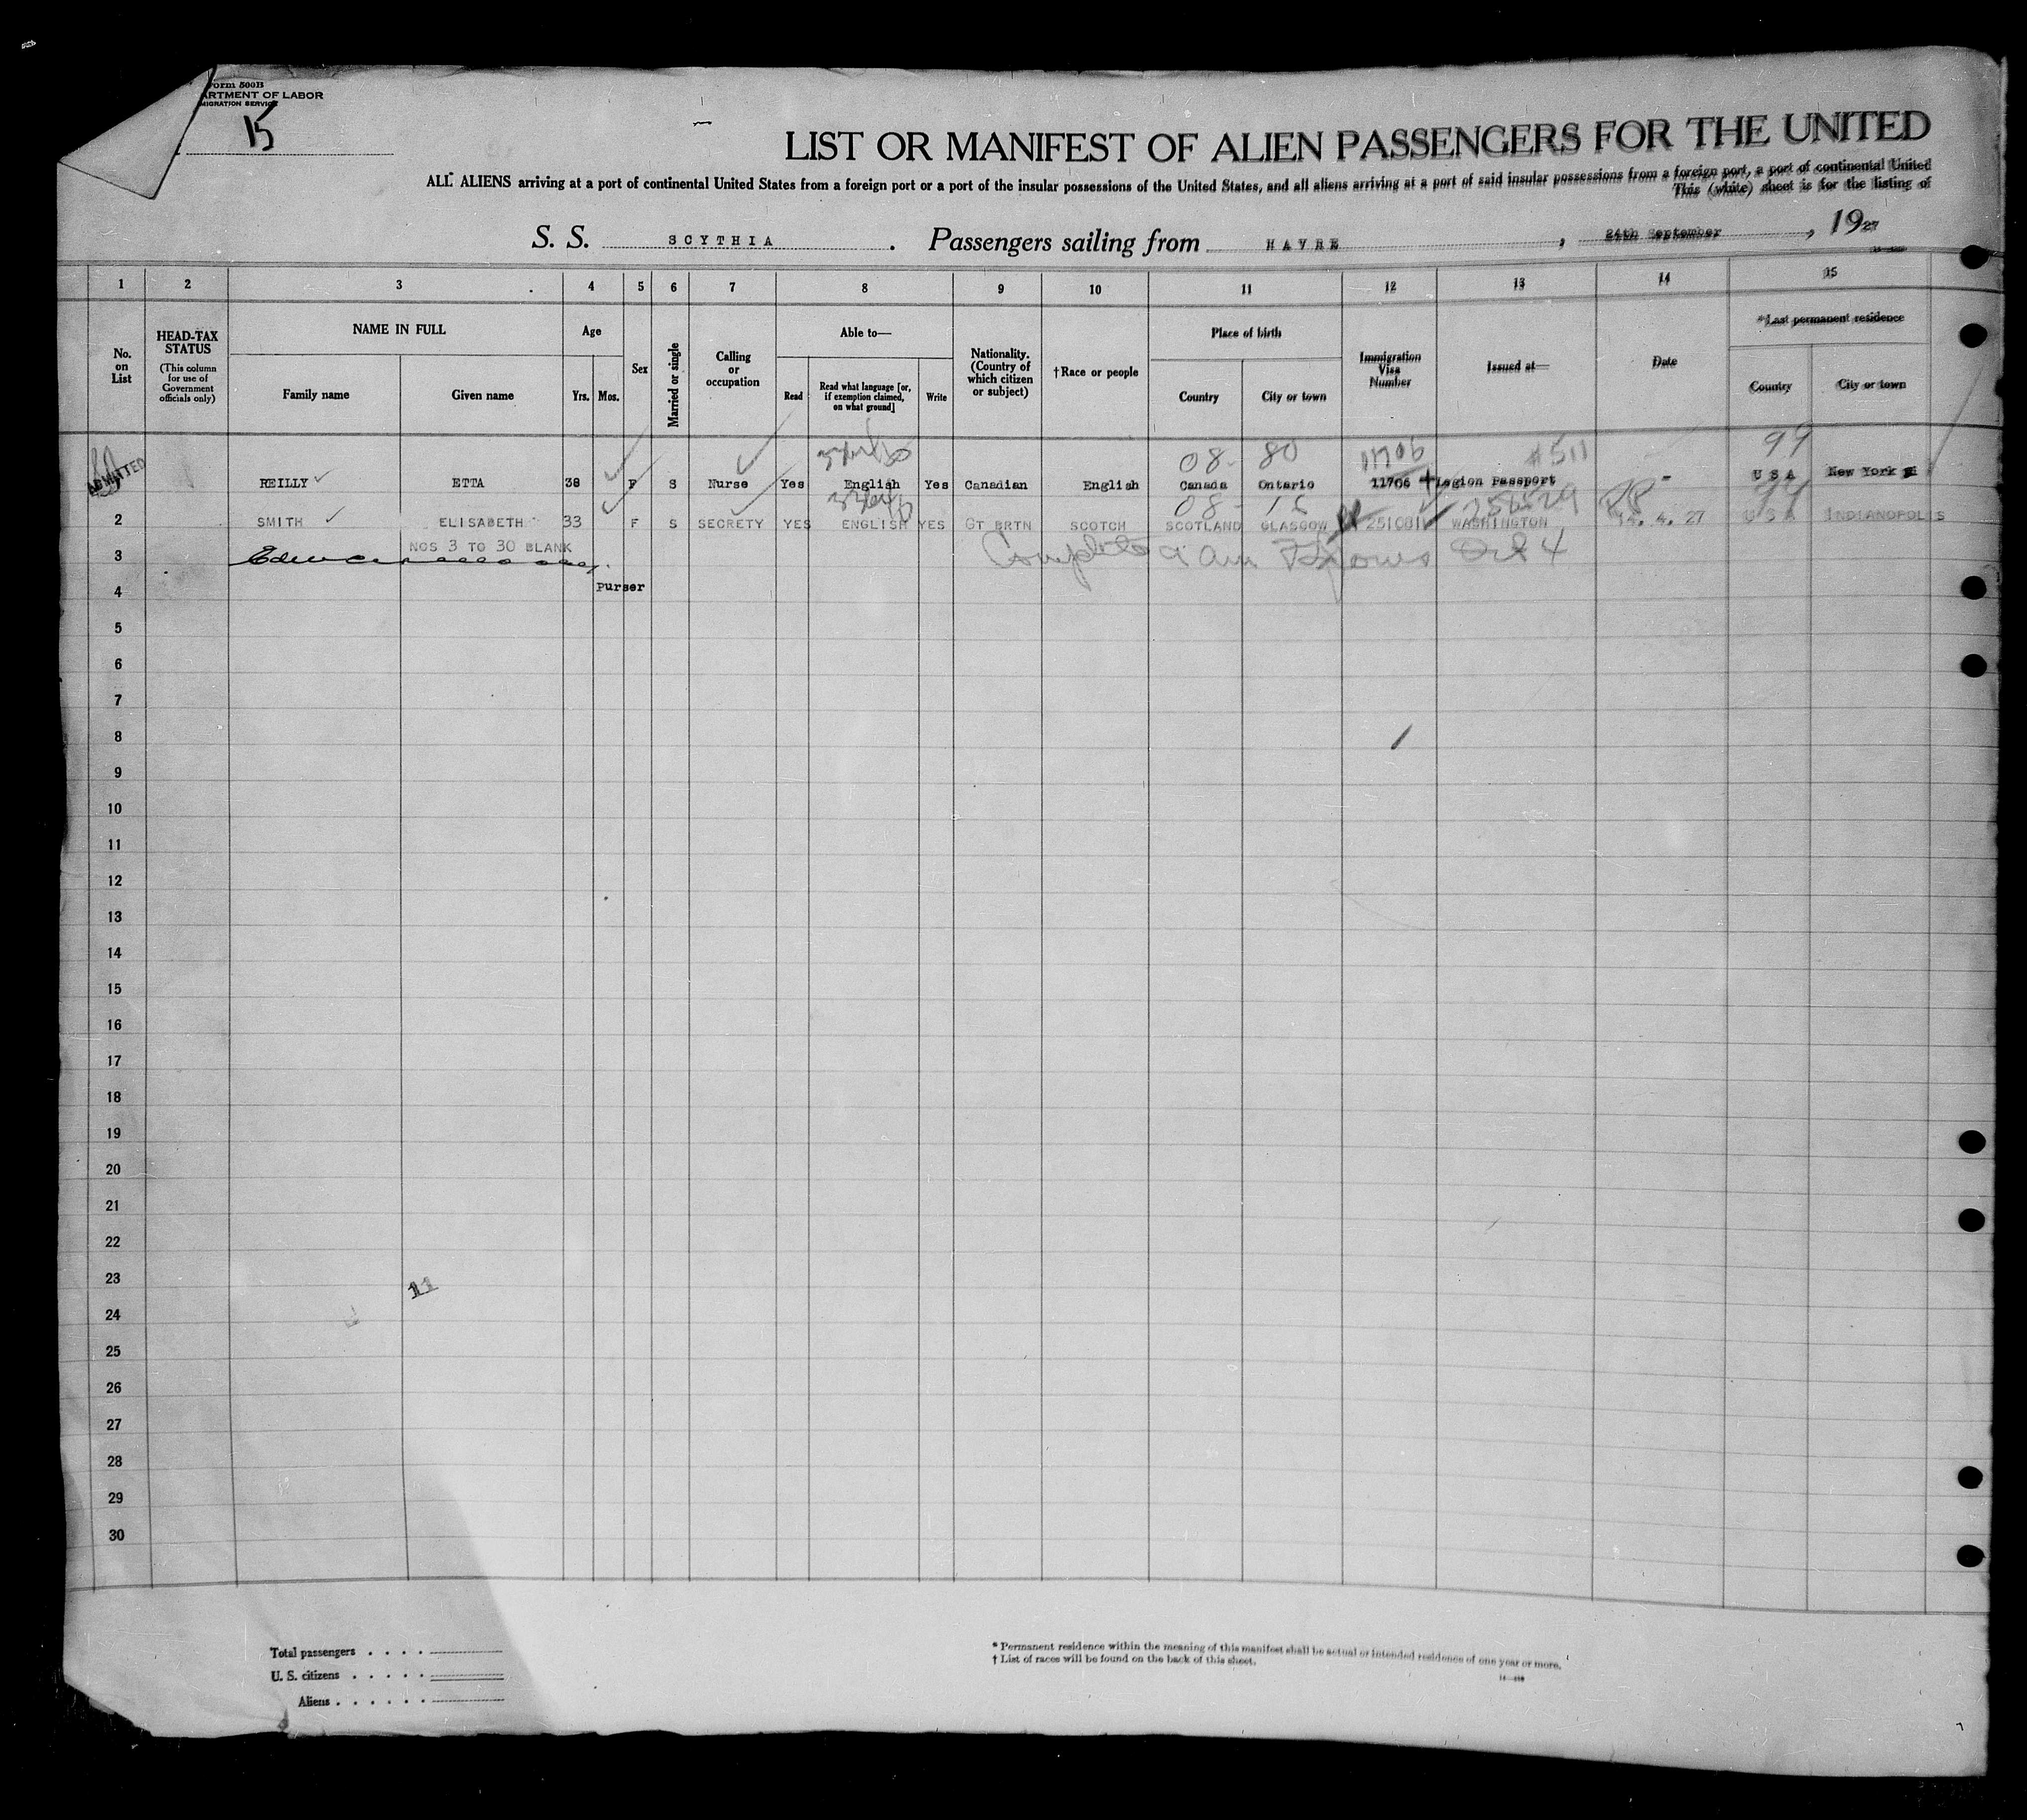 Form 500B
ARTMENT OF LABOR
MIGRATION SERVICE
15
LIST OR MANIFEST OF ALIEN PASSENGERS FOR THE UNITED
ALL ALIENS arriving at a port of continental United States from a foreign port or a port of the insular possessions of the United States, and all aliens arriving at a port of said insular possessions from a foreign port, a port of continental United
This (white) sheet is for the listing of
S. S. SCYTHIA . Passengers sailing from HAVRE , 24th September , 1927
1 2 3 4 5 6 7 8 9 10 11 12 13 14 15
No. on List
HEAD-TAX STATUS (This column for use of Government officials only)
NAME IN FULL
Family name Given name
Age
Yrs. Mos.
Sex
Married or single
Calling or occupation
Able to—
Read Read what language [or, if exemption claimed, on what ground] Write
Nationality. (Country of which citizen or subject)
†Race or people
Place of birth
Country City or town
Immigration Visa Number
Issued at—
Date
*Last permanent residence
Country City or town
08- 80 11706 #511 99
ADMITTED REILLY ETTA 38 F S Nurse Yes English Yes Canadian English Canada Ontario 11706 Legion Passport - U S A New York
08-
2 SMITH ELISABETH 33 F S SECRETY YES ENGLISH YES GT BRTN SCOTCH SCOTLAND GLASGOW WASHINGTON 14. 4. 27 U S A INDIANOPOLIS
NOS 3 TO 30 BLANK
3 Complete 9 am Oct 4
4 Purser
5
6
7
8
9
10
11
12
13
14
15
16
17
18
19
20
21
22
23
11
24
25
26
27
28
29
30
Total passengers . . . .
U. S. citizens . . . . .
Aliens . . . . . .
* Permanent residence within the meaning of this manifest shall be actual or intended residence of one year or more.
† List of races will be found on the back of this sheet.